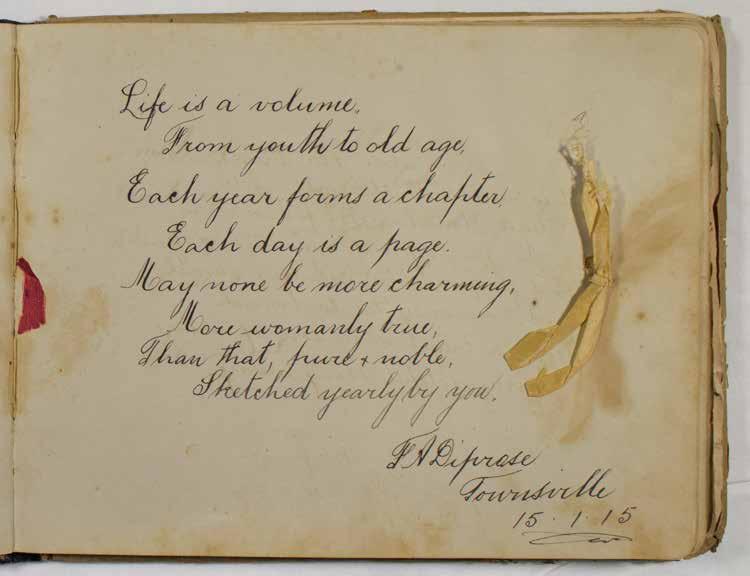 Life is a volume,
From youth to old age,
Each year forms a chapter,
Each day is a page.
May none be more charming,
More womanly true,
Than that, pure & noble,
Sketched yearly by you.
F A Diprose
Townsville
15. 1. 15